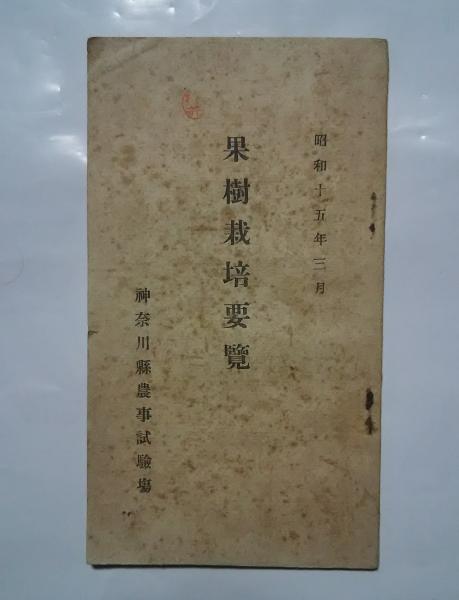 昭和十五年三月
果樹栽培要覽
神奈川縣農事試驗場